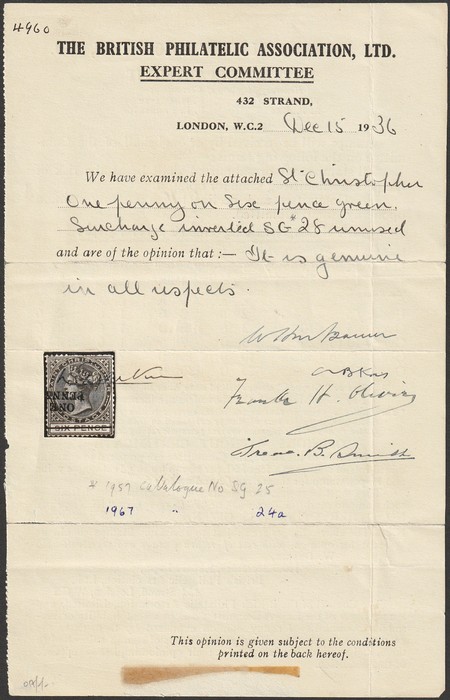 4960
THE BRITISH PHILATELIC ASSOCIATION, LTD.
EXPERT COMMITTEE
432 STRAND,
LONDON, W.C.2 Dec 15 1936
We have examined the attached St Christopher
One penny on Six pence green.
Surcharge inverted SG* 28 unused
and are of the opinion that :— It is genuine
in all respects.
Frank H. Oliver
B.
ONE
PENNY
SIX PENCE
* 1957 Catalogue No SG 25
1967 " 24a
This opinion is given subject to the conditions
printed on the back hereof.